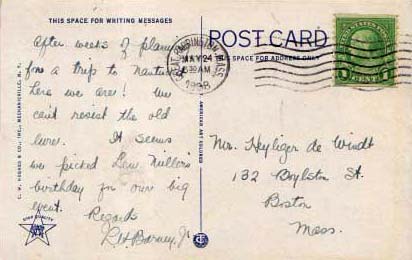 THIS SPACE FOR WRITING MESSAGES
After weeks of plans
for a trip to Nantucket
here we are! We
can't resist the old
lure. It seems
we picked Lew Miller's
birthday for our big
event.
Regards
R H Barney, Jr.
STAR QUALITY
C. W. HUGHES & CO., INC., MECHANICVILLE, N. Y.
AMERICAN ART COLORED
POST CARD
THIS SPACE FOR ADDRESS ONLY
MASS.
MAY 24
30 AM
UNITED STATES POSTAGE
1 CENT 1
Mr. Heyliger de Windt
132 Boylston St.
Boston
Mass.